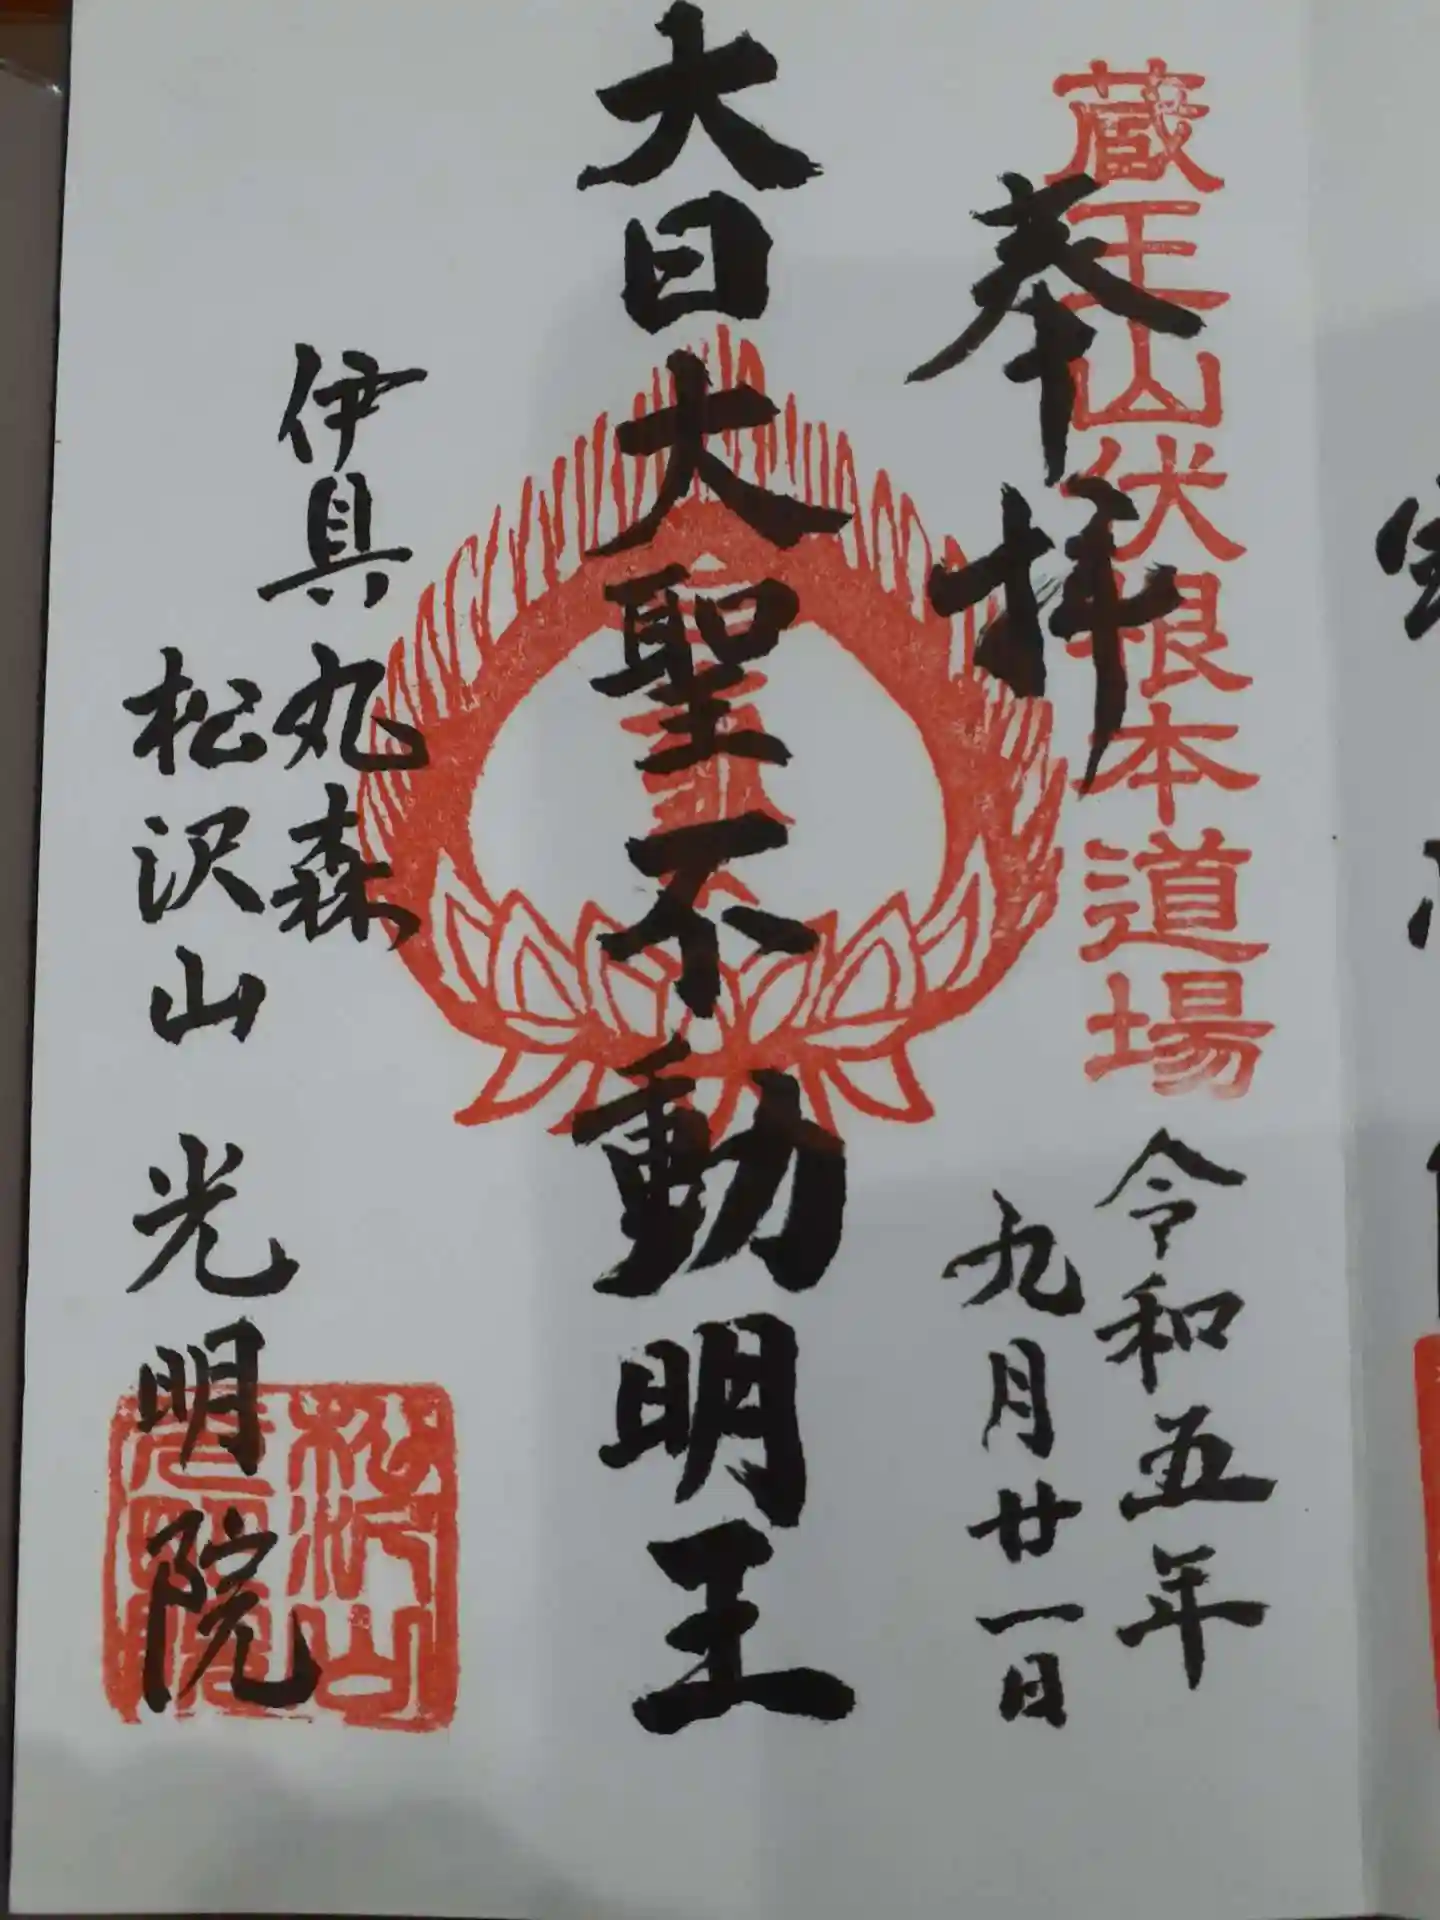 蔵王山伏根本道場
奉拝
令和五年
九月廿一日
大日大聖不動明王
伊具丸森
松沢山 光明院
松沢山
光明院